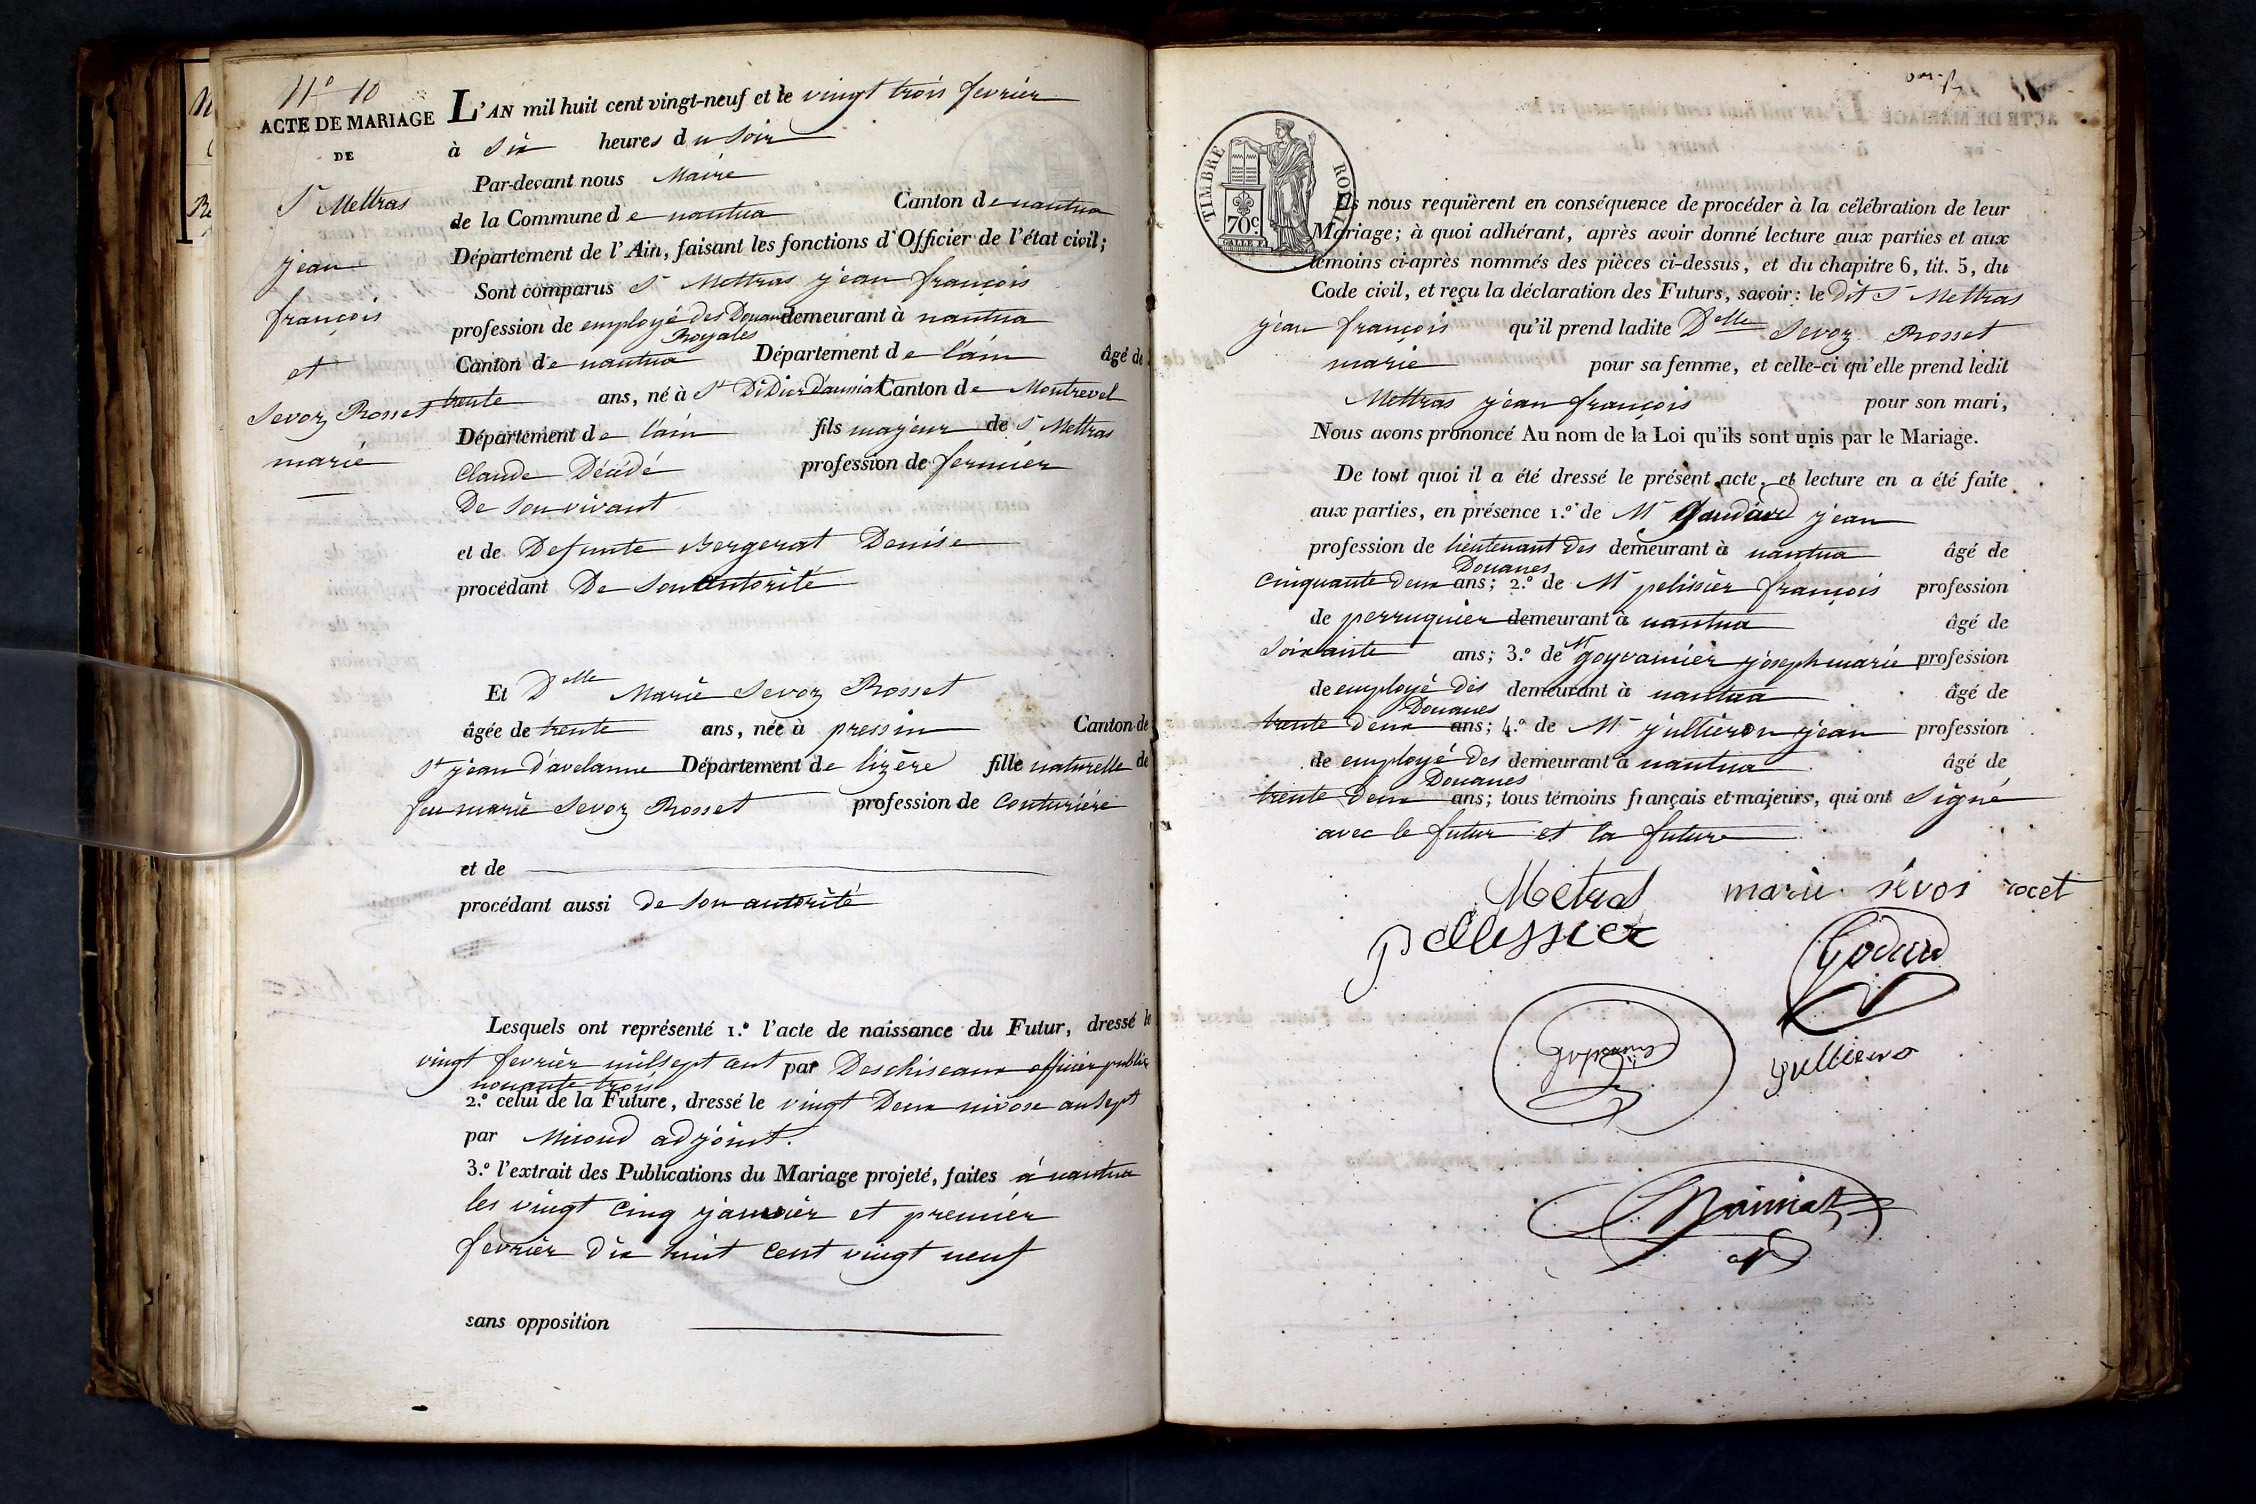 N° 10
ACTE DE MARIAGE
DE
Sr Mettras
jean
françois
et
Sevoz Rosset
marie
L'AN mil huit cent vingt-neuf et le vingt trois fevrier
à Six heures du Soir
Par-devant nous Maire
de la Commune de nantua Canton de nantua
Département de l'Ain, faisant les fonctions d'Officier de l'état civil;
Sont comparus Sr Mettras jean françois
profession de employé des Douanes Royales demeurant à nantua
Canton de nantua Département de l'ain âgé de
trente ans, né à St DiDier d'aussiat Canton de Montrevel
Département de l'ain fils majeur de Sr Mettras
Claude Décédé profession de fermier
De Son vivant
et de Defunte Bergerat Denise
procédant De Son autorité
Et Delle Marie Sevoz Rosset
âgée de trente ans, née à pressin Canton de
St jean d'avelanne Département de lizère fille naturelle de
feu marie Sevoz Rosset profession de Couturière
et de
procédant aussi de Son autorité
Lesquels ont représenté 1.° l'acte de naissance du Futur, dressé le
vingt fevrier milsept cent nonante trois par Deschiseaux officier public
2.° celui de la Future, dressé le vingt Deux nivose an Sept
par Miroud adjoint.
3.° l'extrait des Publications du Mariage projeté, faites à nantua
les vingt cinq janvier et premier
fevrier dix huit cent vingt neuf
sans opposition
TIMBRE ROYAL
70c
Ils nous requièrent en conséquence de procéder à la célébration de leur
Mariage; à quoi adhérant, après avoir donné lecture aux parties et aux
témoins ci-après nommés des pièces ci-dessus, et du chapitre 6, tit. 5, du
Code civil, et reçu la déclaration des Futurs, savoir: le dit Sr Mettras
jean françois qu'il prend ladite Delle Sevoz Rosset
marie pour sa femme, et celle-ci qu'elle prend ledit
Mettras jean françois pour son mari,
Nous avons prononcé Au nom de la Loi qu'ils sont unis par le Mariage.
De tout quoi il a été dressé le présent acte, et lecture en a été faite
aux parties, en présence 1.° de Mr Gaudard jean
profession de lieutenant des Douanes demeurant à nantua âgé de
cinquante deux ans; 2.° de Mr pelissier françois profession
de perruquier demeurant à nantua âgé de
Soixante ans; 3.° de Mr goyvannier joseph marie profession
de employé des Douanes demeurant à nantua âgé de
trente deux ans; 4.° de Mr jullieron jean profession
de employé des Douanes demeurant à nantua âgé de
trente deux ans; tous témoins français et majeurs, qui ont Signé
avec le futur et la future
Metras marie sévos rocet
Pellissier
Godard